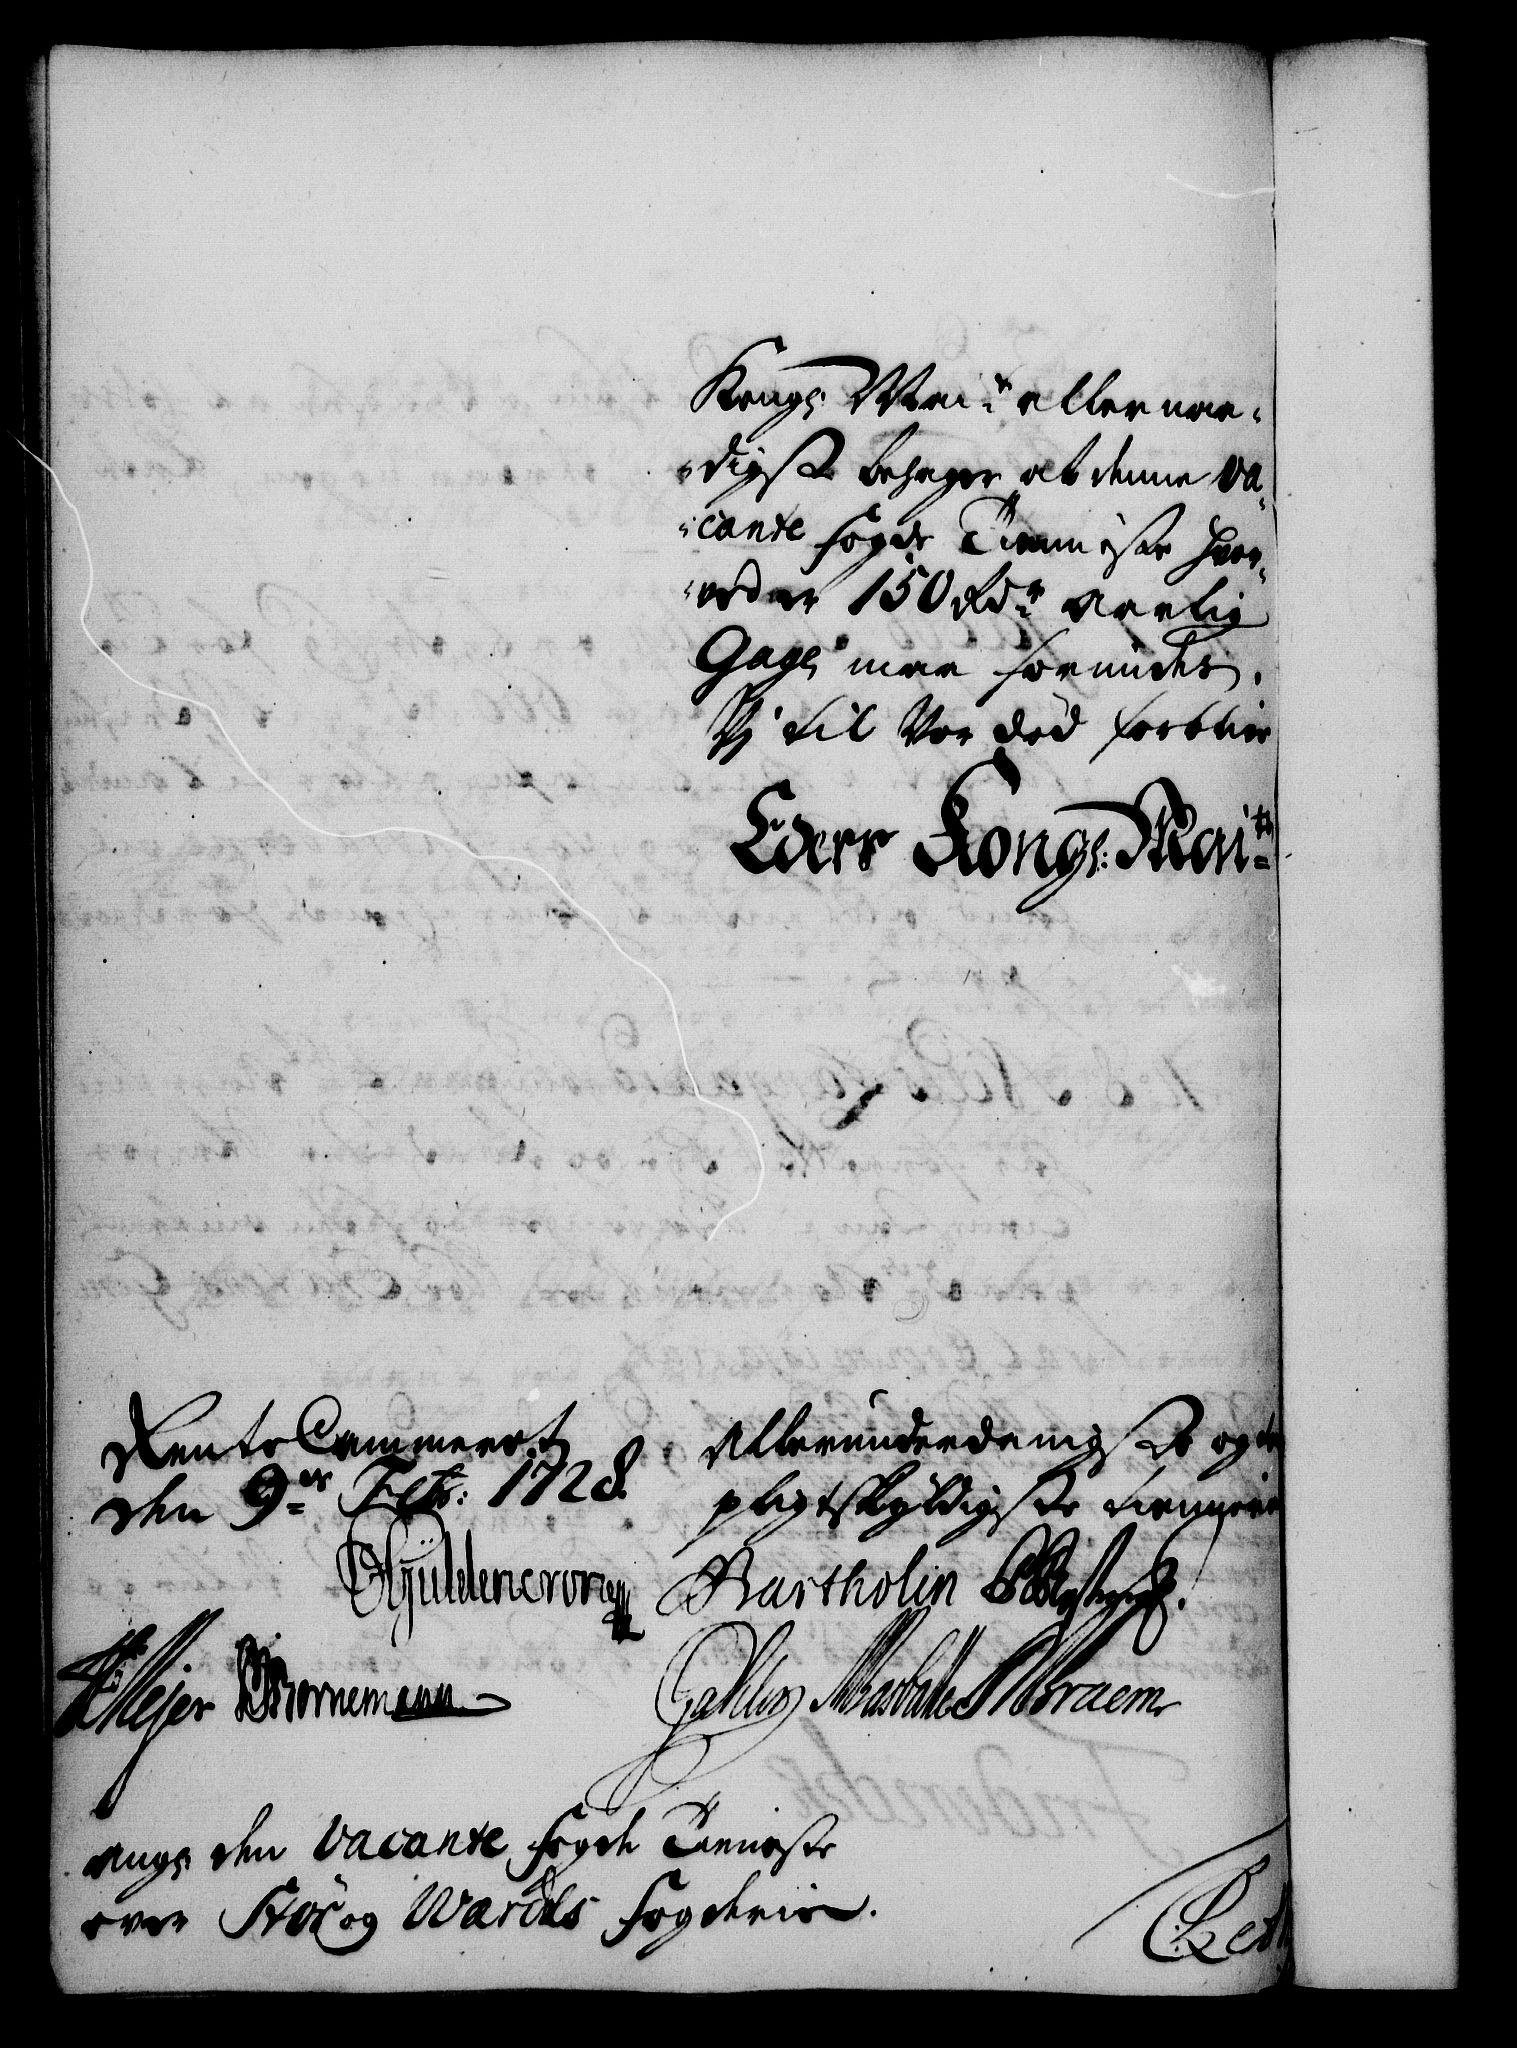 Kongl Mai:t allernaa-
-digst behager at denne va-
-cante fogde Tienniste hvor-
-ved er 150 Rd:r aarlig
Gage maa forundes.
Vj til Vor död forblir
Eders Kongl: Mai:ts
RenteCammeret
den 9:de Feb: 1728.
Allerunderdanigste og
pligtskyldigste tiennere
Gyldencrone Bartholin
Mejer Bornemann
Braem
ang: den vacante fogde Tienniste
over Stör og Wærdals fogderie.